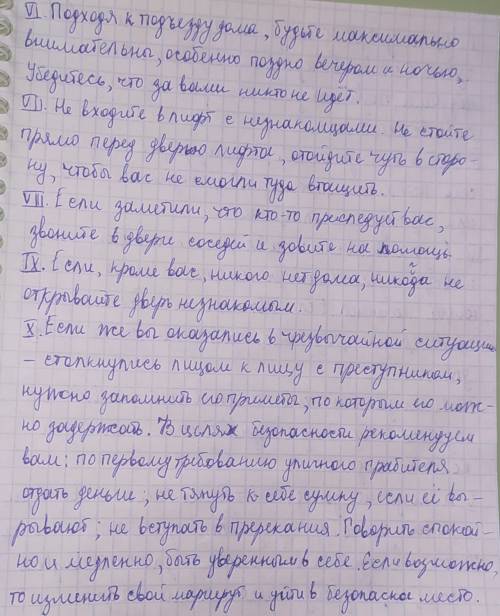 VI. Подходя к подъезду дома, будьте максимально
внимательны, особенно поздно вечером и ночью,
Убедитесь, что за вами никто не идёт.
VII. Не входите в лифт с незнакомцами. Не стойте
прямо перед дверью лифта, отойдите чуть в сторо-
ну, чтобы вас не смогли туда втащить.
VIII. Если заметили, что кто-то преследует вас,
звоните в двери соседей и зовите на помощь.
IX. Если, кроме вас, никого нет дома, никогда не
открывайте дверь незнакомым.
X. Если же вы оказались в чрезвычайной ситуации
– столкнулись лицом к лицу с преступником,
нужно запомнить его приметы, по которым его мож-
но задержать. В целях безопасности рекомендуем
вам: по первому требованию уличного грабителя
отдать деньги; не тянуть к себе сумку, если её вы-
рывают; не вступать в пререкания. Говорить спокой-
но и медленно, быть уверенным в себе. Если возможно,
то изменить свой маршрут и уйти в безопасное место.